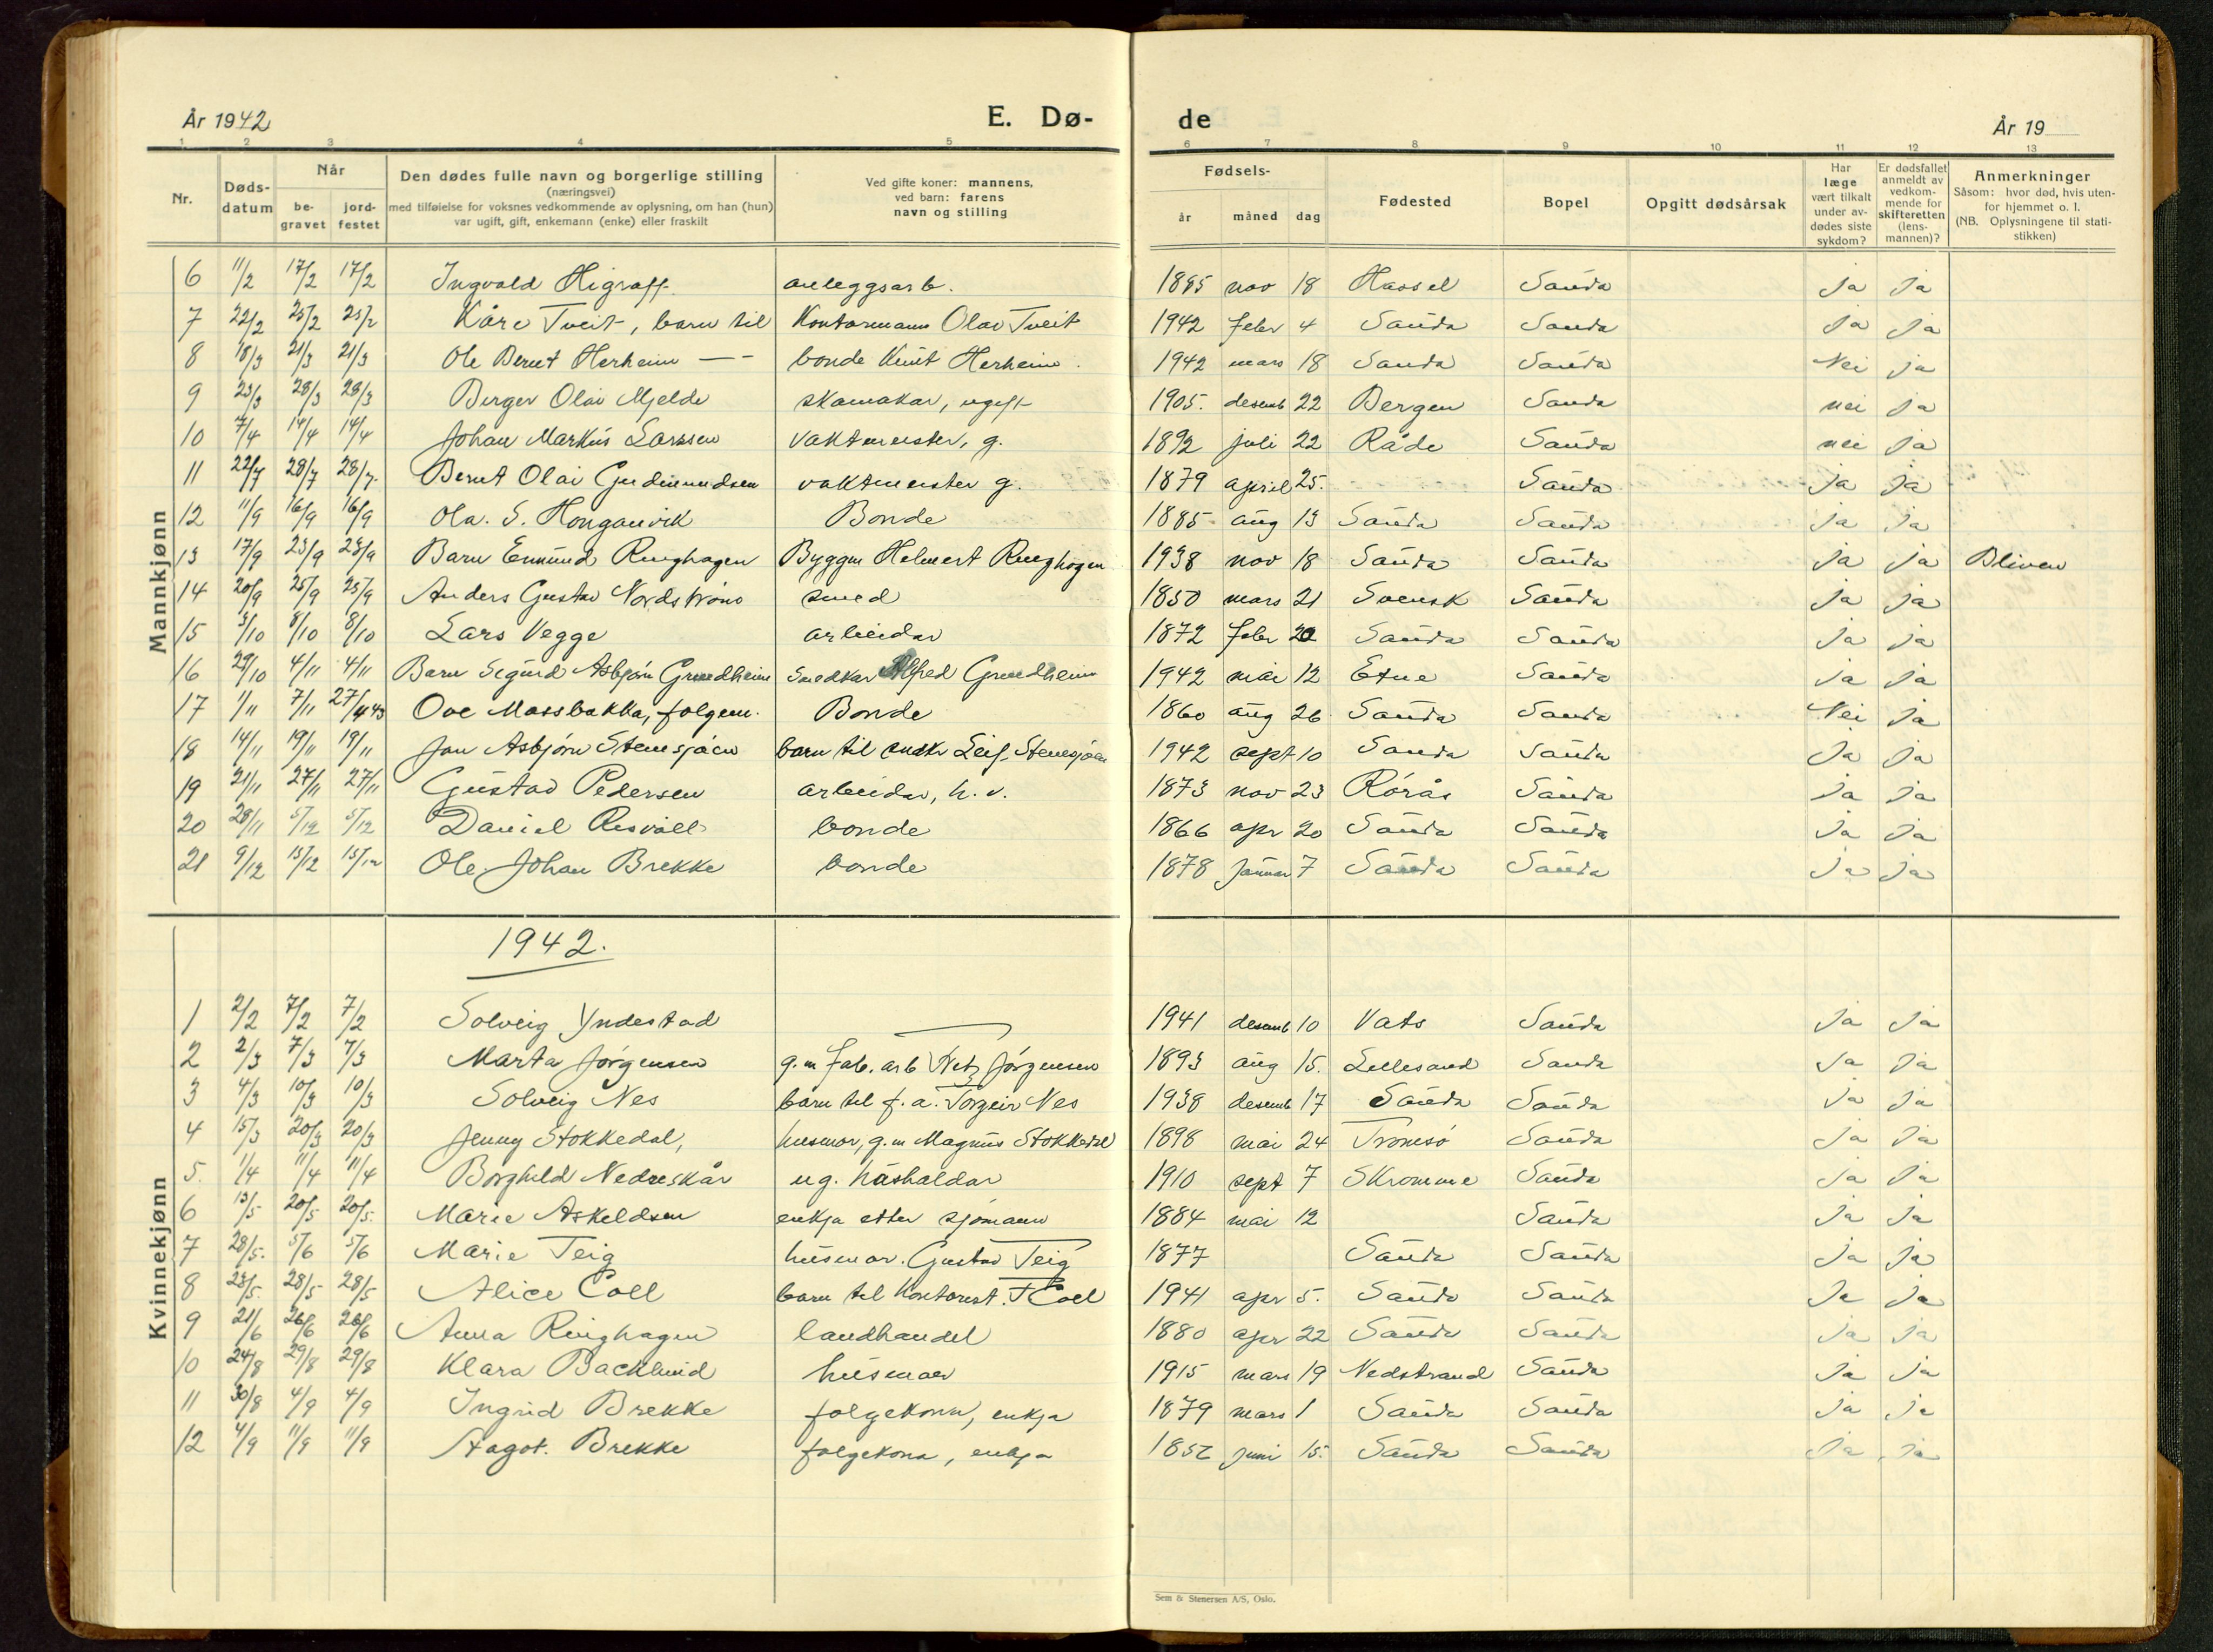 År 1942 E. Dø- de År 19
1 2 3 4 5 6 7 8 9 10 11 12 13
Nr. Døds-datum Når be-gravet jord-festet Den dødes fulle navn og borgerlige stilling (næringsvei) med tilføielse for voksnes vedkommende av oplysning, om han (hun) var ugift, gift, enkemann (enke) eller fraskilt Ved gifte koner: mannens, ved barn: farens navn og stilling Fødsels- år måned dag Fødested Bopel Opgitt dødsårsak Har læge vært tilkalt under av-dødes siste sykdom? Er dødsfallet anmeldt av vedkom-mende for skifteretten (lens-mannen)? Anmerkninger Såsom: hvor død, hvis uten-for hjemmet o. l. (NB. Oplysningene til stati-stikken)
Mannkjønn
6 11/2 17/2 17/2 Ingvald Higraff anleggsarb. 1895 nov 18 Hassel Sauda Ja Ja
7 22/2 25/2 25/2 Kåre Tveit, barn til Kontormann Olav Tveit 1942 febr 4 Sauda Sauda Ja Ja
8 18/3 21/3 21/3 Ole Bernt Herheim — - bonde Knut Herheim. 1942 mars 18 Sauda Sauda Nei Ja
9 23/3 28/3 28/3 Birger Olai Mjelde skomakar, ugift 1905. desemb 22 Bergen Sauda nei Ja
10 7/4 14/4 14/4 Johan Markus Larssen vaktmeister, g. 1892 juli 22 Råde Sauda nei Ja
11 22/7 28/7 28/7. Bernt Olai Gudmundsen vaktmeister g. 1879 april 25. Sauda Ja Ja
12 11/9 16/9 16/9 Ola. S. Honganvik Bonde 1885 aug 13 Sauda Sauda Ja Ja
13 17/9 23/9 23/9 Barn Enmund Ringhagen Byggm Helmert Ringhagen 1938 nov 18 Sauda Sauda Ja Ja Bliven
14 20/9 25/9 25/9 Anders Gustav Nordstrøm smed 1850 mars 21 Svensk Sauda Ja Ja
15 3/10 8/10 8/10 Lars Vegge arbeidar 1872 febr 20 Sauda Sauda Ja Ja
16 29/10 4/11 4/11 Barn Sigurd Asbjørn Grundheim Snedkar Alfred Grundheim 1942 mai 12 Etne Sauda Ja Ja
17 1/11 7/11 27/4 43 Ove Mossbakka, folgem. Bonde 1860 aug 26 Sauda Sauda Nei Ja
18 14/11 19/11 19/11 Jan Asbjørn Stensjøen barn til snekr Leif Stensjøen 1942 sept 10 Sauda Sauda Ja Ja
19 21/11 27/11 27/11 Gustav Pedersen arbeidar, h. v. 1873 nov 23 Rørås Sauda Ja Ja
20 28/11 5/12 5/12 Daniel Risvoll bonde 1866 apr 20 Sauda Sauda Ja Ja
21 9/12 15/12 15/12 Ole Johan Brekke bonde 1878 januar 7 Sauda Sauda Ja Ja
1942.
Kvinnekjønn
1 2/2 7/2 7/2 Solveig Yndestad 1941 desemb 10 Vats Sauda Ja Ja
2 2/3 7/3 7/3 Marta Jørgensen g. m fab. arb Jørgensen 1893 aug 15. Lillesand Sauda Ja Ja
3 4/3 10/3 10/3 Solveig Nes barn til f. a. Torgeir Nes 1938 desemb 17 Sauda Sauda Ja Ja
4 15/3 20/3 20/3 Jenny Stokkedal, husmor, g. m Magnus Stokkedal 1898 mai 24 Tromsø Sauda Ja Ja
5. 1/4 11/4 11/4 Borghild Nedreskår ug. hushaldar 1910 sept 7 Skromme Sauda Ja Ja
6 13/5 20/5 20/5. Marie Askeldsen enkja etter sjømann 1884 mai 12 Sauda Ja Ja
7 28/5. 5/6 5/6 Marie Teig husmor. Gustav Teig 1877 Sauda Sauda Ja Ja
8 23/5. 28/5 28/5 Alice Coll barn til Kontorist. T Coll 1941 apr 5. Sauda Sauda Ja Ja
9 21/6 26/6 26/6 Anna Ringhagen landhandel 1880 apr 22 Sauda Sauda Ja Ja
10 24/8 29/8 29/8 Klara Backlund husmor 1915 mars 19 Nedstrand Sauda Ja Ja
11 30/8 4/9 4/9 Ingrid Brekke folgekona, enkja 1879 mars 1 Sauda Sauda Ja Ja
12 4/9 11/9 11/9 Aagot. Brekke folgekona, enkja juni 15. Sauda Sauda Ja Ja
Sem & Stenersen A/S, Oslo.